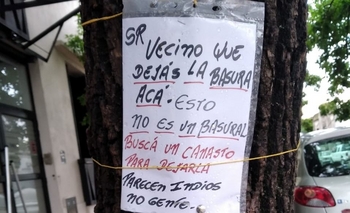 SR
VECINO QUE
DEJÁS LA BASURA
ACÁ - ESTO
NO ES UN BASURAL
BUSCÁ UN CANASTO
PARA DEJARLA
PARECEN INDIOS
NO GENTE -